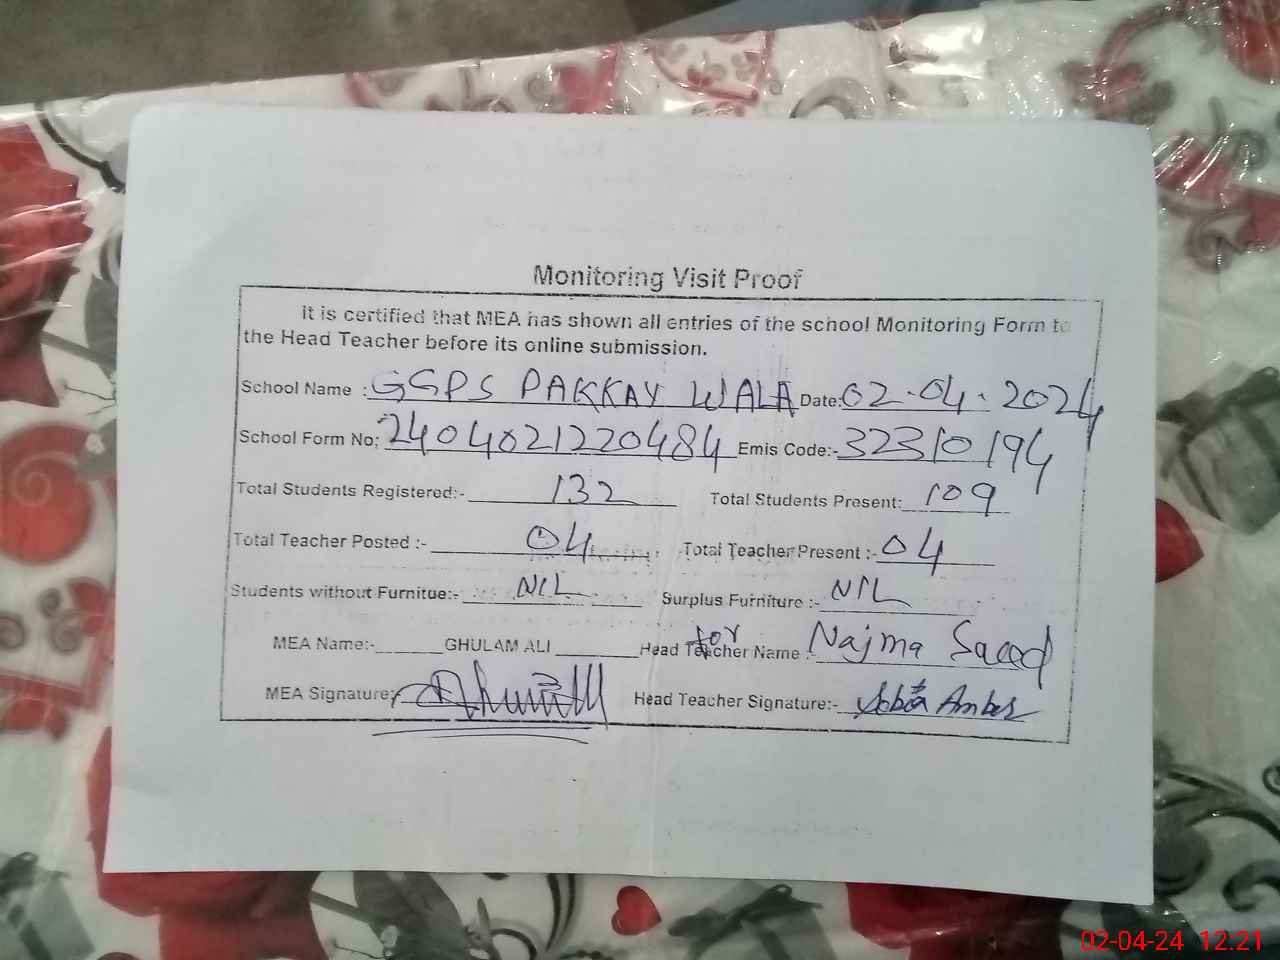 Monitoring Visit Proof
It is certified that MEA has shown all entries of the school Monitoring Form to
the Head Teacher before its online submission.
School Name :- GGPS PAKKAY WALA Date:- 02.04.2024
School Form No: 2404021220484 Emis Code:- 32310194
Total Students Registered:- 132 Total Students Present: 109
Total Teacher Posted :- 04 Total Teacher Present :- 04
Students without Furnitue:- NIL Surplus Furniture :- NIL
for
MEA Name:- GHULAM ALI Head Teacher Name :- Najma Saeed
MEA Signature: Head Teacher Signature:- Sobia Amber
02-04-24 12:21